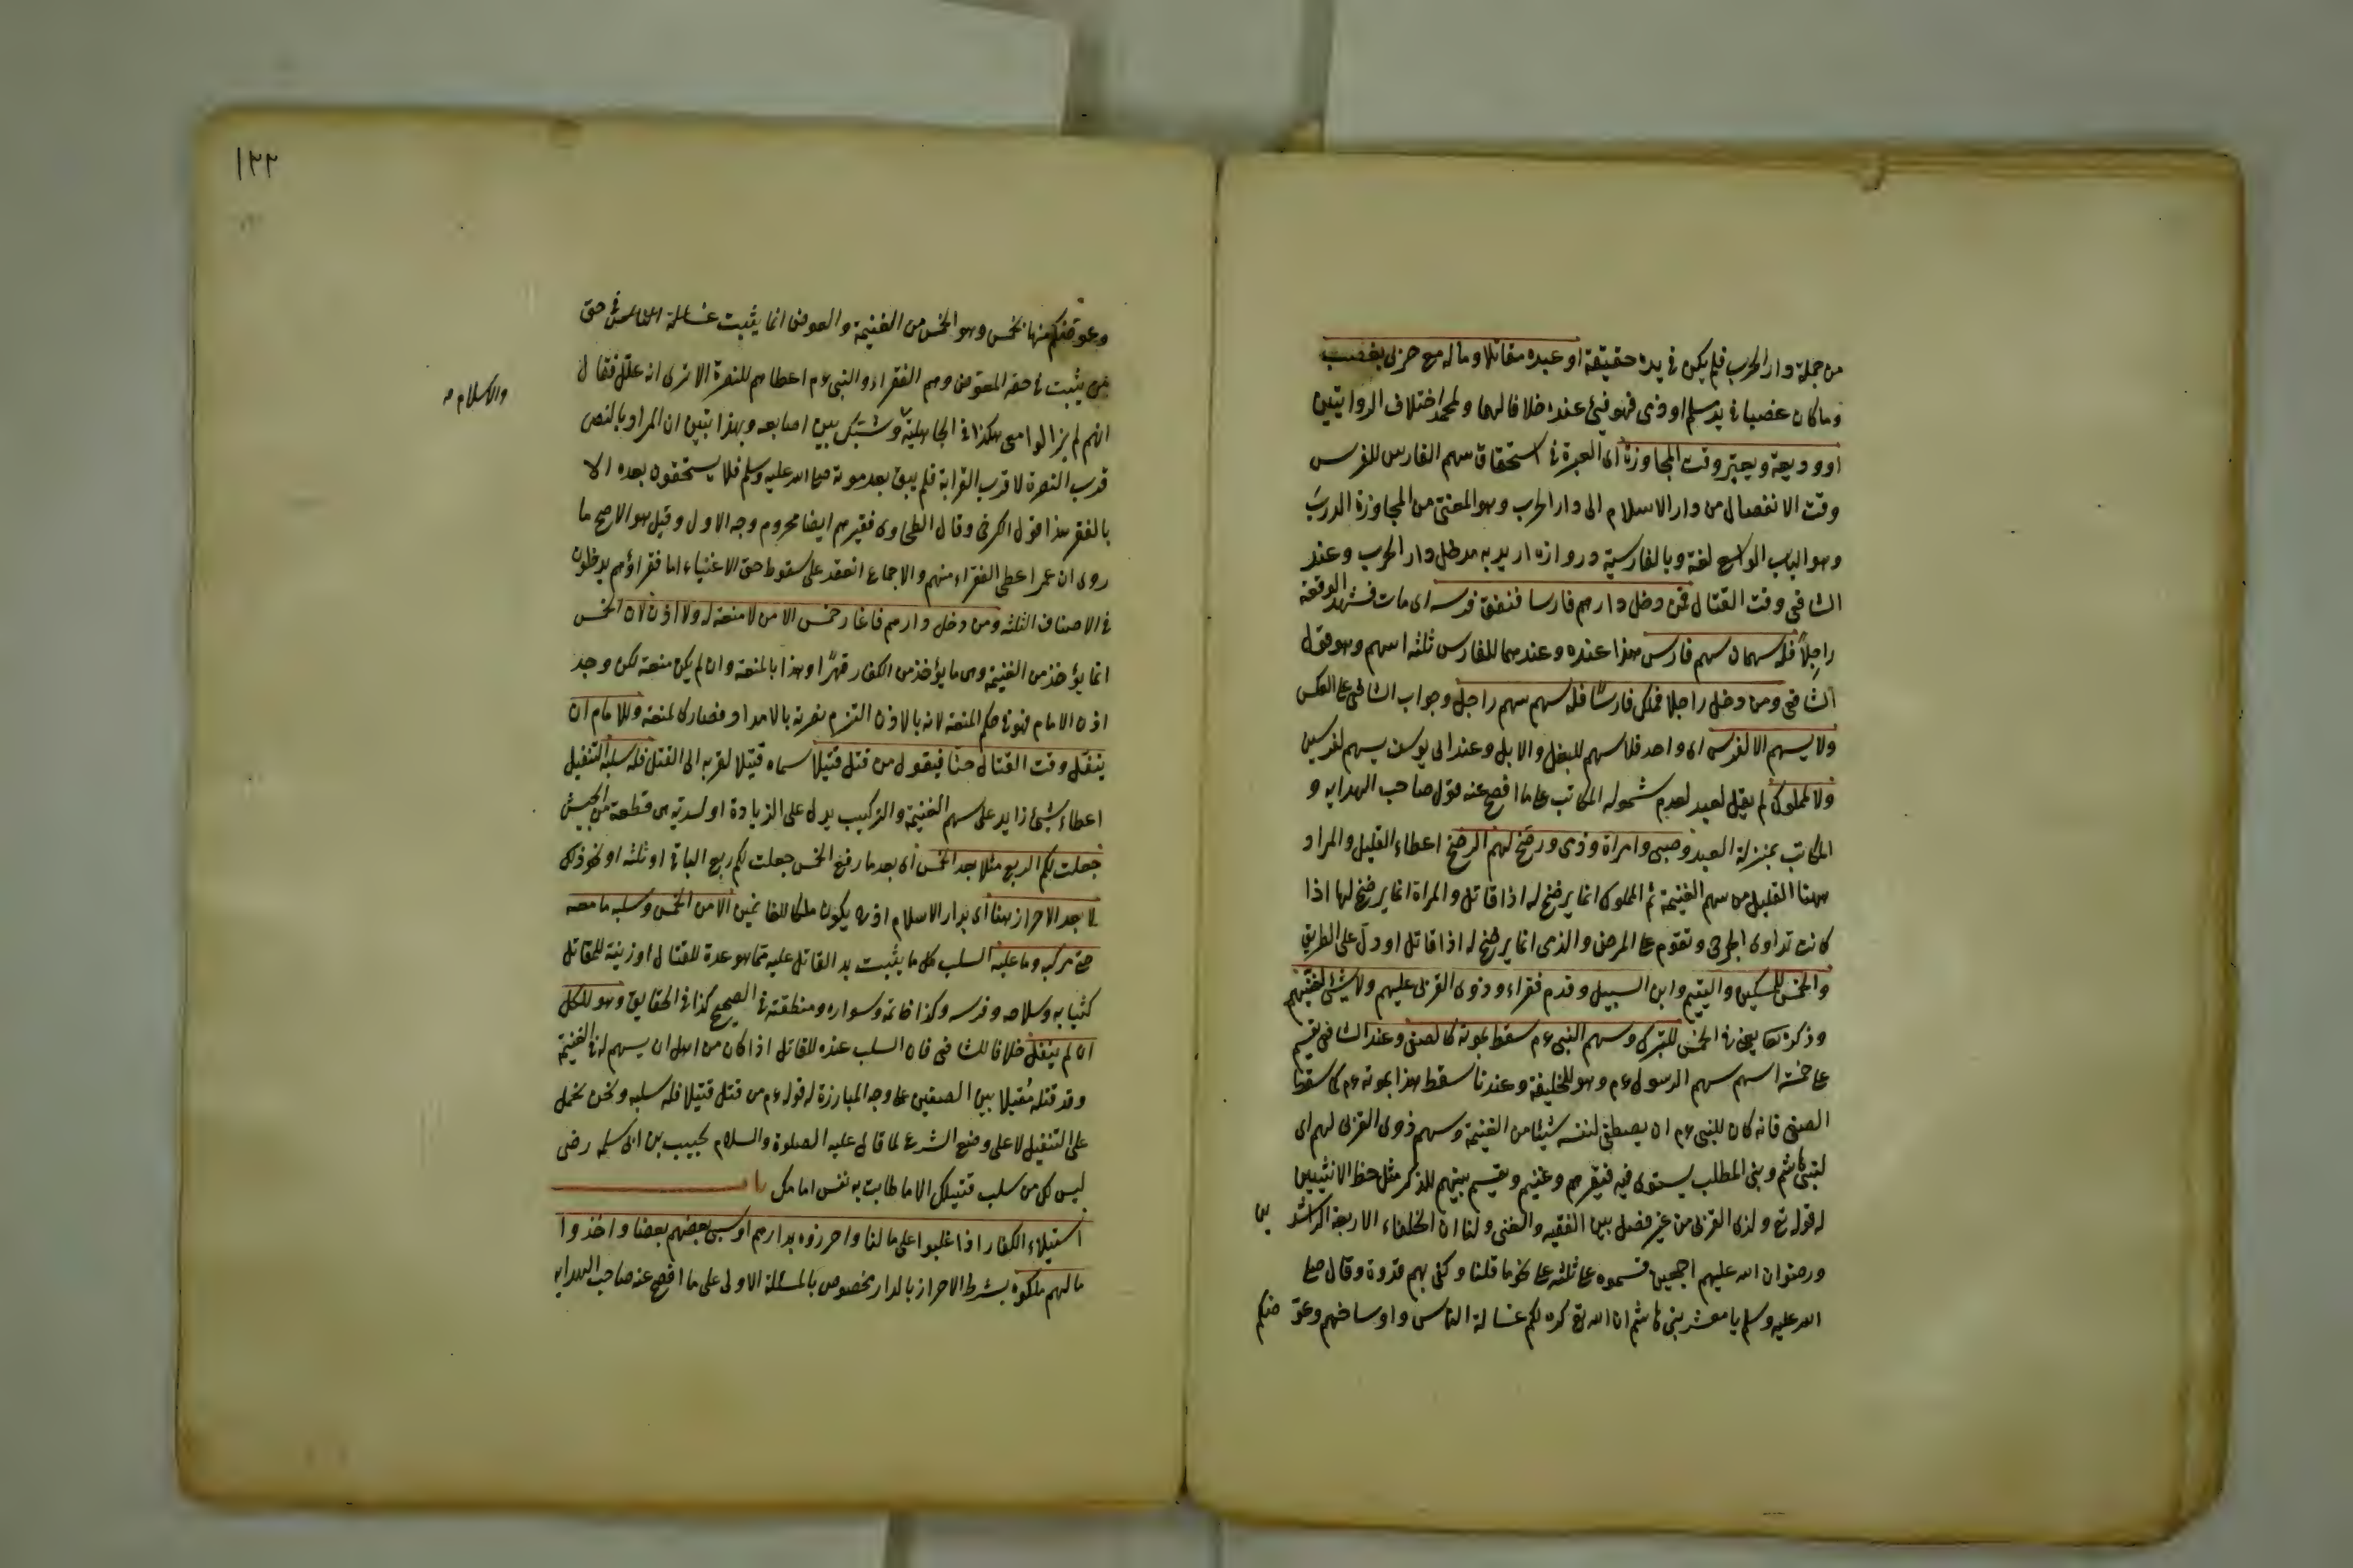 من جملة دار الحرب فلم يكن في يده حقيقة او عبده مقاتلا وماله مع حربى بغصب
وما كان غصبا في يد مسلم او ذمى فهو فيئ عنده خلافا لهما ولمحمد اختلاف الروايتين
او وديعة ويعتبر وقت المجاوزة اى العبرة في استحقاق سهم الفارس للفرس
وقت الانفصال من دار الاسلام الى دار الحرب وهو المعنى من المجاوزة الدرب
وهو الباب الواسع لغة وبالفارسية دروازه اريد به مدخل دار الحرب وعند
الشافى وقت القتال فمن دخل دارهم فارسا فنفق فرسه اى مات فشهد الوقعة
راجلاً فله سهمان سهم فارس هذا عنده وعندهما للفارس ثلثه اسهم وهو قول
الشافى ومن دخل راجلا فملك فارسا فله سهم سهم راجل وجواب الشافى على العكس
ولا يسهم الا لفرس اى واحد فلا سهم للبغل والابل وعند ابى يوسف يسهم لفرسين
ولا لمملوك لم يقل لعبد لعدم شموله المكاتب على ما افصح عنه قول صاحب الهدايه و
المكاتب بمنزلة العبد وصبى وامراة وذمى ورضخ لهم الرضخ اعطاء القليل والمراد
ههنا القليل من سهم الغنيمة ثم المملوك انما يرضخ له اذا قاتل والمراة انما يرضخ لها اذا
كانت تداوى الجرحى وتقوم على المرضى والذمى انما يرضخ له اذا قاتل او دل على الطريق
والخمس للمسكين واليتيم وابن السبيل وقدم فقراء ذوى القربى عليهم ولا شئ لغنيهم
وذكره تعا يعنى في الخمس للتبرك وسهم النبى عم سقط بموته كالصفى وعند الشافى يقسم
على خمسة اسهم سهم الرسول عم وهو للخليفة وعندنا سقط هذا بموته عم كما سقط
الصفى فانه كان للنبى عم ان يصطفى لنفسه شيئا من الغنيمة وسهم ذوى القربى لهم اى
لبنى هاشم وبنى المطلب يستوى فيه فقيرهم وغنيهم ويقسم بينهم للذكر مثل حظ الانثيين
له قوله تع ولذى القربى من غير فصل بين الفقير والغنى ولنا ان الخلفاء الاربعة الراشد ين
ورضوان الله عليهم اجمعين قسموه على ثلثه على نحو ما قلنا وكفى بهم قدوة وقال صلى
الله عليه وسلم يا معشر بنى هاشم ان الله تع كره لكم غسالة الناس واوساخهم وعو ضكم
١٢٢
وعوضكم منها بخمس وهو الخمس من الغنيمة والعوض انما يثبت غسالة الناس في حق
من يثبت في حقه المعوض وهم الفقراء والنبى عم اعطاهم للنصرة الا ترى انه علل فقال
انهم لم يزالوا معى هكذا في الجاهلية وشبك بين اصابعه وبهذا تبين ان المراد بالنص
والاسلام صح
قرب النصرة لا قرب القرابة فلم يبق بعد موته صلى الله عليه وسلم فلا يستحقون بعده الا
بالفقر هذا قول الكرخى وقال الطحاوى فقيرهم ايضا محروم وجه الاول وقيل هو الاصح ما
روى ان عمر اعطى الفقراء منهم والاجماع انعقد على سقوط حق الاغنياء اما فقراؤهم يدخلون
في الاصناف الثلثه ومن دخل دارهم فاغار خمس الا من لا منعة له ولا اذن لان الخمس
انما يؤخذ من الغنيمة وهى ما يؤخذ من الكفار قهرًا وهذا بالمنعة وان لم يكن منعة لكن وجد
اذن الامام فهو في حكم المنعة لانه بالاذن التزم نصرته بالامداد فصار كالمنعة وللامام ان
ينفل وقت القتال حثا فيقول من قتل قتيلا سماه قتيلا لقربه الى القتل فله سلبه التنفيل
اعطاء شئ زايد على سهم الغنيمة والتركيب يدل على الزيادة او لسرية هى قطعة من الجيش
جعلت لكم الربع مثلا بعد الخمس اى بعد ما رفع الخمس جعلت لكم ربع الباقى او ثلثه او نحو ذلك
لا بعد الاحراز ههنا اى بدار الاسلام اذ به يكون ملكا للغانمين الا من الخمس وسلبه ما معه
حتى مركبه وما عليه السلب كل ما يثبت يد القاتل عليه مما هو عدة للقتال او زينة للمقاتل
كثيابه وسلاحه وفرسه وكذا خاتمه وسواره ومنطقته في الصحيح كذا في الحقايق وهو للكل
ان لم ينفل خلافا للشافى فان السلب عنده للقاتل اذا كان من اهل ان يسهم له في الغنيمة
وقد قتله مُقبلا بين الصفين على وجه المبارزة له قوله عم من قتل قتيلا فله سلبه ونحن نحمل
على التنفيل لا على وضع الشرع لما قال عليه الصلوة والسلام لحبيب بن ابى سلمه رضى
ليس لك من سلب قتيلك الا ما طابت به نفس امامك باب
استيلاء الكفار اذا غلبوا على مالنا واحرزوه بدارهم او سبى بعضهم بعضا واخذوا
مالهم ملكوه بشرط الاحراز بالدار مخصوص بالمسئلة الاولى على ما افصح عنه صاحب الهدايه